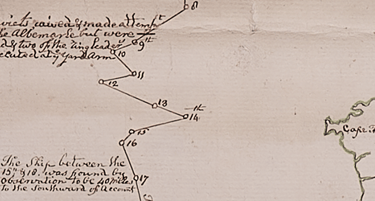 8
victs raised & made attempt
e Albemarle but were
d & two of the ringleaders
9th
ecuted at yᵉ Yard Arm
10
11
12
13
14th
15
16
Cape
The Ship between the
15th & 18. was found by
observation to be 40 miles
to the Southward of account
17